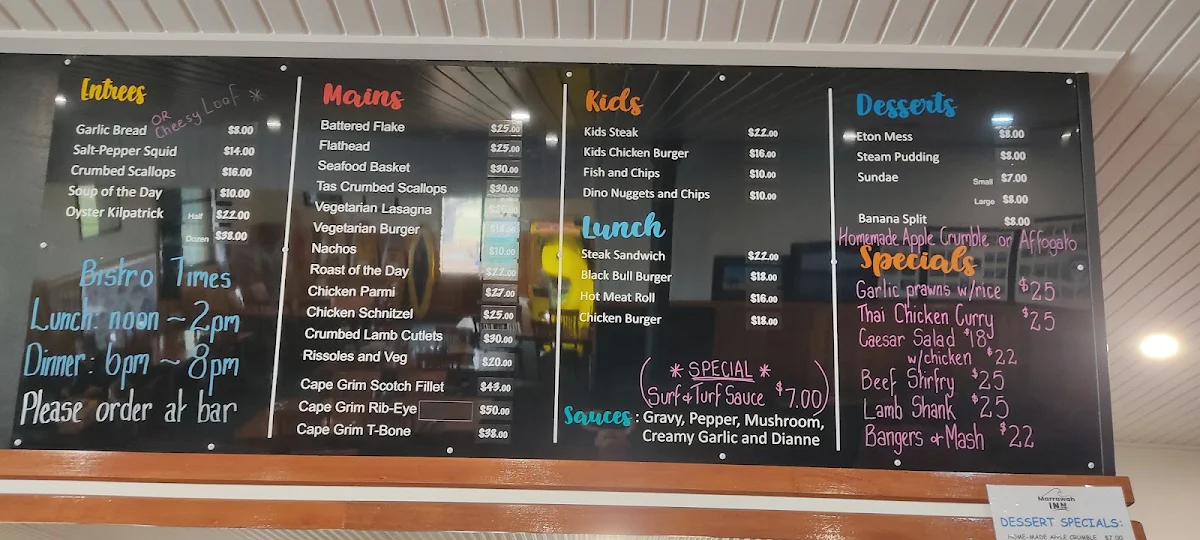 Entrees
Garlic Bread OR Cheesy Loaf * $8.00
Salt-Pepper Squid $14.00
Crumbed Scallops $16.00
Soup of the Day $10.00
Oyster Kilpatrick Half $22.00
Dozen $38.00
Bistro Times
Lunch: noon ~ 2pm
Dinner: 6pm ~ 8pm
Please order at bar
Mains
Battered Flake $25.00
Flathead $25.00
Seafood Basket $30.00
Tas Crumbed Scallops $30.00
Vegetarian Lasagna
Vegetarian Burger
Nachos $10.00
Roast of the Day $22.00
Chicken Parmi $27.00
Chicken Schnitzel $25.00
Crumbed Lamb Cutlets $30.00
Rissoles and Veg $20.00
Cape Grim Scotch Fillet $43.00
Cape Grim Rib-Eye $50.00
Cape Grim T-Bone $38.00
Kids
Kids Steak $22.00
Kids Chicken Burger $16.00
Fish and Chips $10.00
Dino Nuggets and Chips $10.00
Lunch
Steak Sandwich $22.00
Black Bull Burger $18.00
Hot Meat Roll $16.00
Chicken Burger $18.00
* SPECIAL *
(Surf & Turf Sauce $7.00)
Sauces: Gravy, Pepper, Mushroom,
Creamy Garlic and Dianne
Desserts
Eton Mess $8.00
Steam Pudding $8.00
Sundae Small $7.00
Large $8.00
Banana Split $8.00
Homemade Apple Crumble or Affogato
Specials
Garlic prawns w/rice $25
Thai Chicken Curry $25
Caesar Salad $18
w/chicken $22
Beef Stirfry $25
Lamb Shank $25
Bangers & Mash $22
Marrawah
INN
DESSERT SPECIALS:
HOME-MADE APPLE CRUMBLE $7.00